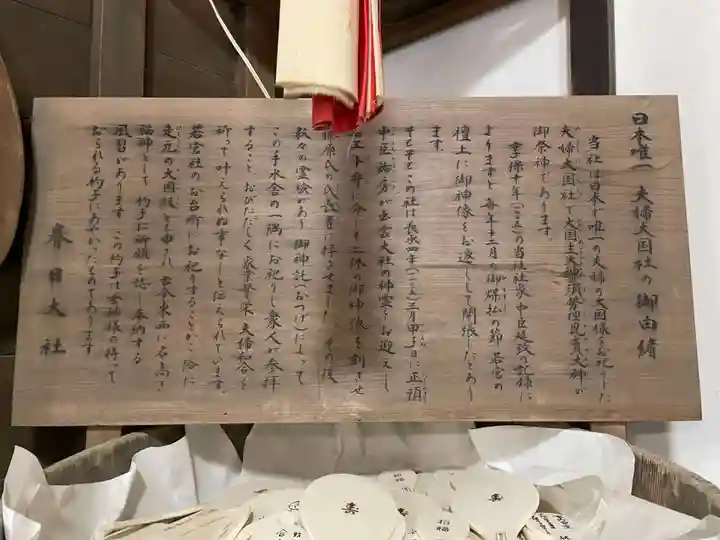 日本唯一 夫婦大国社の御由緒
当社は日本で唯一の夫婦の大国様をお祀りした
夫婦大国社で大国主大神須勢理毘売大神が
御祭神であります。
享保十年の当社社家中臣延致の記録に
よりますと毎年十二月の御煤払の節若宮の
壇上に御神像をお遷しして開帳したとあり
ます。
そもそもこの社は長承四年三月甲子日に正預
中臣祐房が出雲大社の神霊をお迎えし
二体の御神像を刻ませ
藤原氏の氏長者に
数々の霊験があり御神託（おつげ）によって
この手水舎の一隅にお祀りし衆人が参拝
すること、おびただしく家業繁栄、夫婦和合を
祈って叶えられぬ事なしと伝えられています。
若宮社のお台所にお祀りすることから俗に
走元の大国様とも申され古来東西に名高き
福神として杓子に祈願を誌し奉納する
風習があります。この杓子は女神様の持って
おられる杓子にあやかったものであります
春日大社
寿
招福
寿
招福